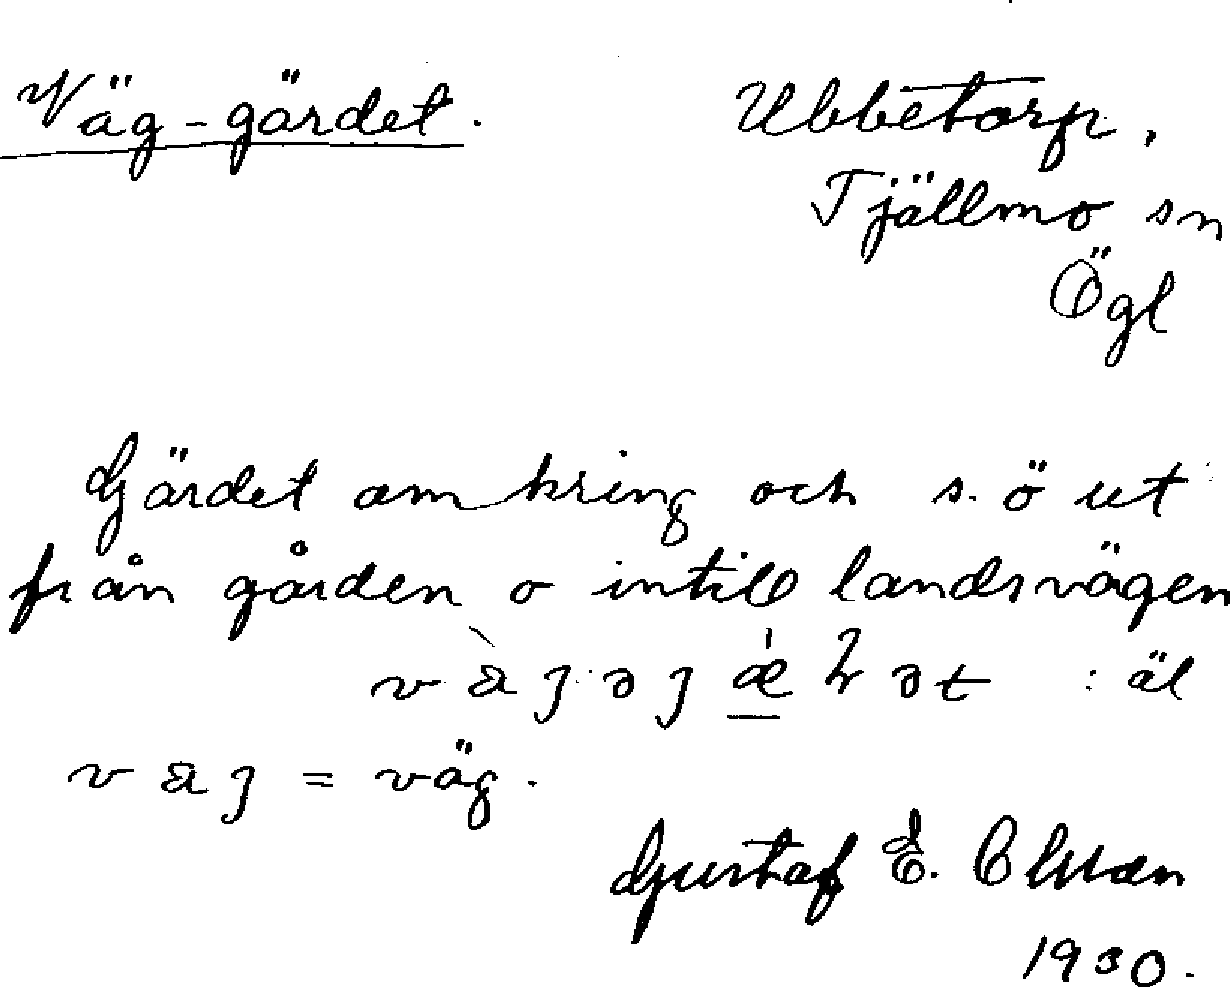 Väg-gärdet.
Ubbetorp,
Tjällmo sn
Ögl
Gärdet omkring och s.ö ut
från gården o intill landsvägen
: äl
= väg.
Gustaf E. Olsson
1930.